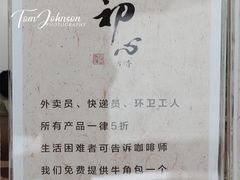 Tom Johnson
PHOTOGRAPHY
初心
外卖员、快递员、环卫工人
所有产品一律5折
生活困难者可告诉咖啡师
我们免费提供牛角包一个